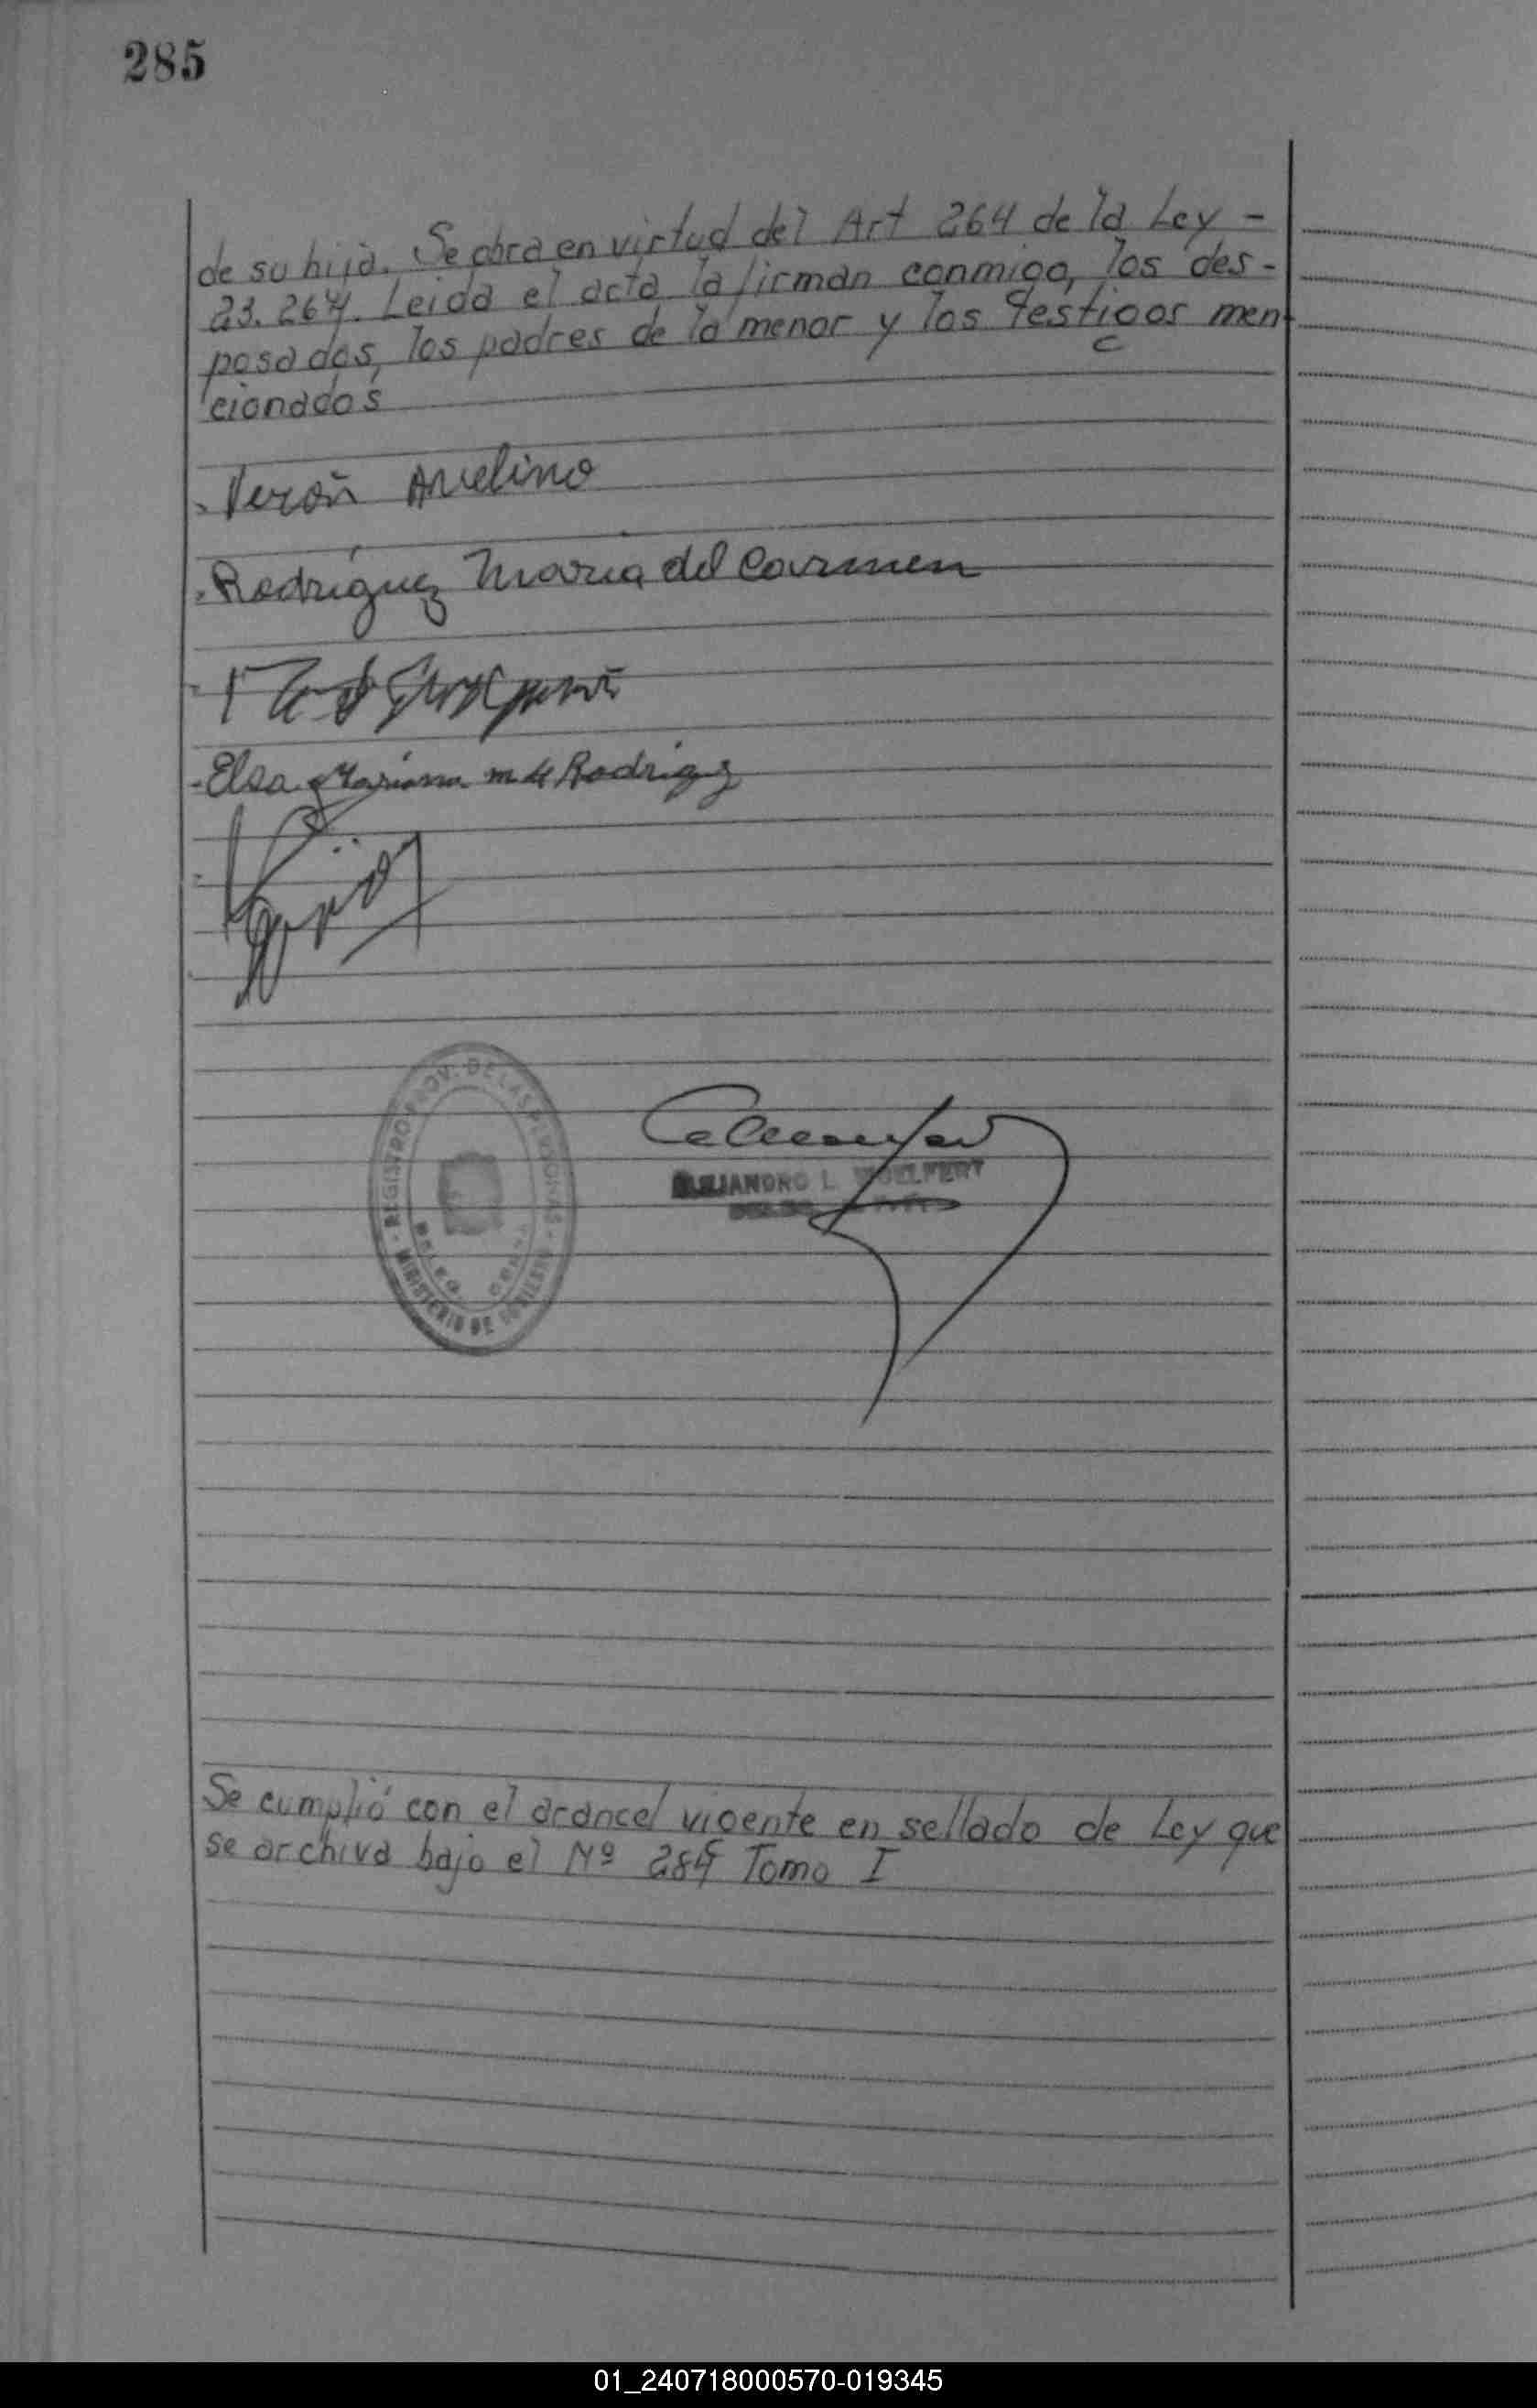 285
de su hija. Se obra en virtud del Art 264 de la Ley -
23.264. Leida el acta la firman conmigo, los des-
posados, los padres de la menor y los testigos men-
cionados
Verón Avelino
Rodríguez María del Carmen
Elsa Mariana m de Rodriguez
REGISTRO PROV. DE LAS PERSONAS
MINISTERIO DE GOBIERNO
DELEG.
ALEJANDRO L. WOELFERT
Se cumplió con el arancel vigente en sellado de Ley que
se archiva bajo el Nº 285 Tomo I
01_240718000570-019345